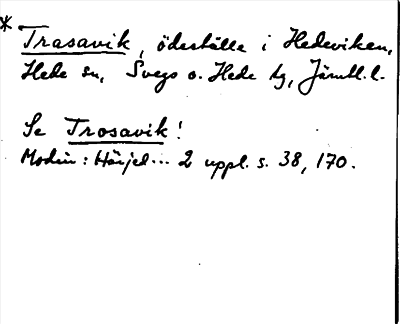 * Trasavik, ödeställe i Hedeviken,
Hede sn, Svegs o. Hede tg, Jämtl. l.
Se Trosavik!
Modin: Härjed... 2 uppl. s. 38, 170.